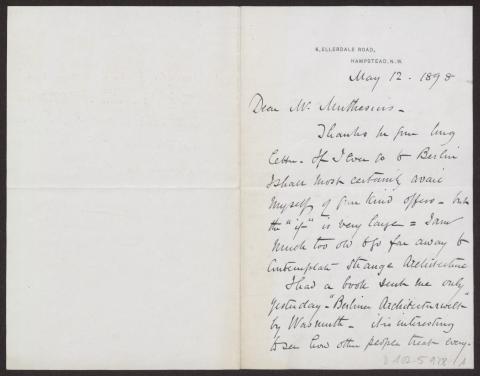 6, ELLERDALE ROAD,
HAMPSTEAD. N.W.
May 12. 1898
Dear Mr. Muthesius -
Thanks for your long
letter - If I ever go to Berlin
I shall most certainly avail
myself of your kind offers - but
the "if" is very large = I am
much too old to go far away to
Contemplate Strange Architecture
I had a book sent me only
yesterday - "Berliner Architekturwelt"
by Wasmuth - it is interesting
to see how other people treat every-